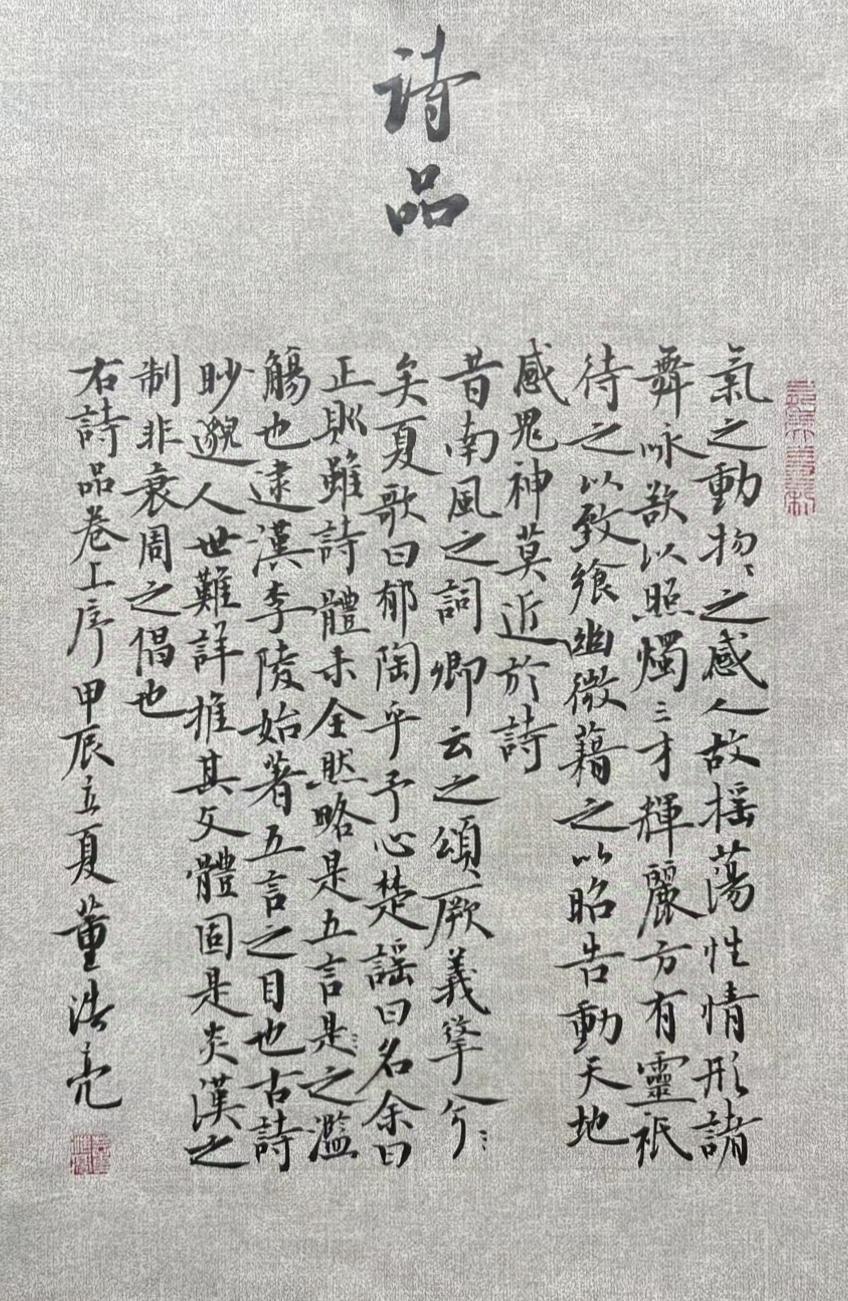 詩品
氣之動物〻之感人故摇蕩性情形諸
舞咏欲以照燭三才輝麗方有靈祇
待之以致飨幽微藉之以昭告動天地
感鬼神莫近於詩
昔南風之詞卿云之頌厥義夐兮〻
矣夏歌曰郁陶乎予心楚謡曰名余曰
正則雖詩體未全然略是五言是〻之濫
觴也逮漢李陵始著五言之目也古詩
眇邈人世難詳推其文體固是炎漢之
制非衰周之倡也
右詩品卷上序甲辰立夏董浩亮